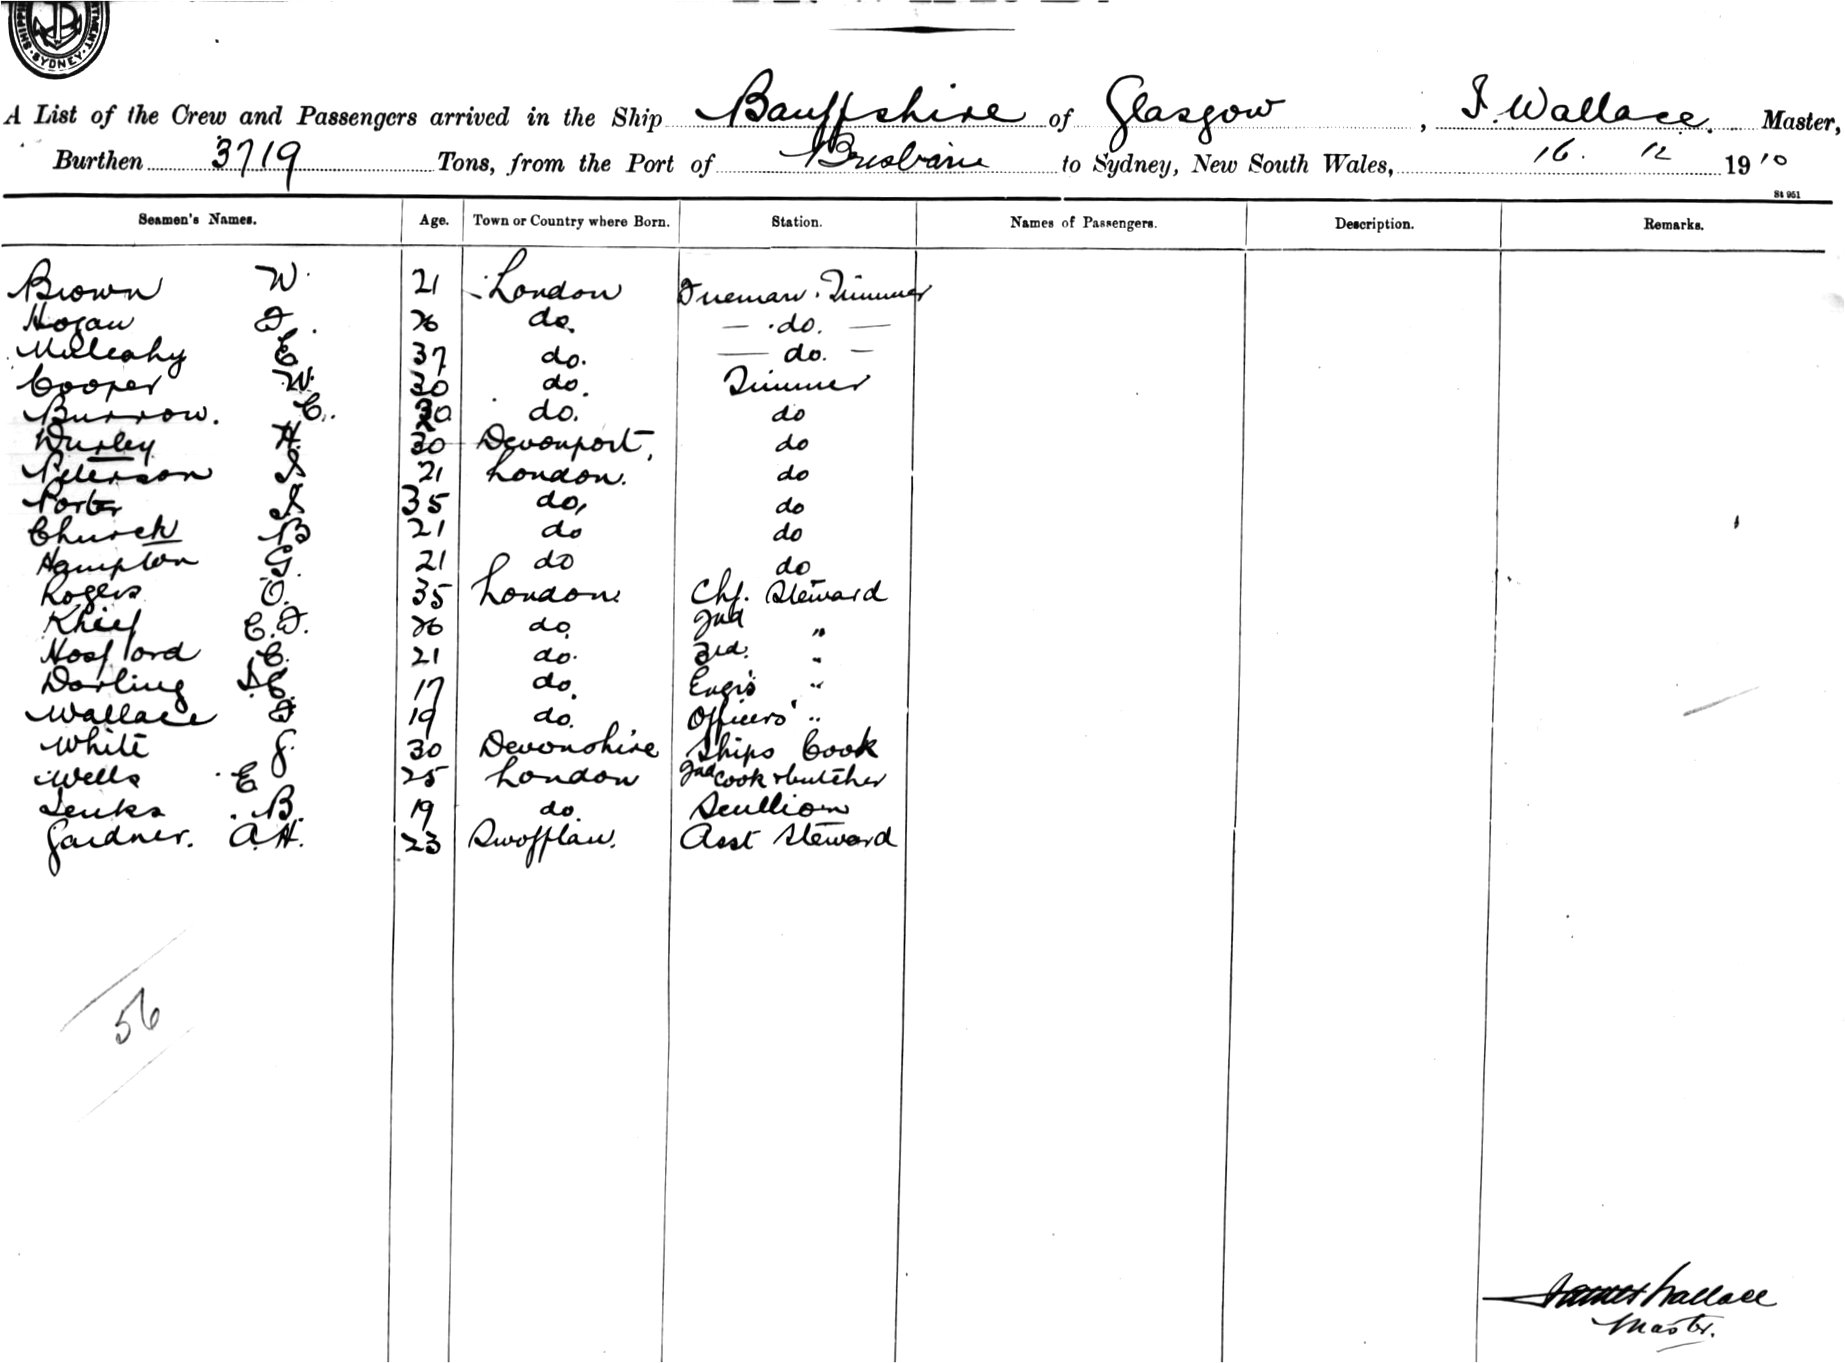 SHIPPING DEPARTMENT SYDNEY
A List of the Crew and Passengers arrived in the Ship Banffshire of Glasgow, J. Wallace. Master,
Burthen 3719 Tons, from the Port of Brisbane to Sydney, New South Wales, 16. 12 1910
St 951
Seamen's Names. Age. Town or Country where Born. Station. Names of Passengers. Description. Remarks.
Brown W. 21 London Fireman. Trimmer
Hogan F. 26 do. — do. —
Mulcahy E 37 do. — do. —
Cooper W. 30 do. Trimmer
Burrow. C. 30 do. do
Wurley H. 30 Devonport. do
Peterson J 21 London. do
Porter J. 35 do, do
Church B 21 do do
Hampton G. 21 do do
Rogers O. 35 London. Chf. Steward
Khief C. F. 26 do. 2nd "
Hosfford C. 21 do. 3rd. "
Darling J. C. 17 do. Engrs "
Wallace F 19 do. Officers' "
White J. 30 Devonshire Ships Cook
Wells E 25 London 2nd Cook & butcher
Jenks B. 19 do. Scullion
Gardner. A. H. 23 Asst Steward
56
James Wallace
Master.